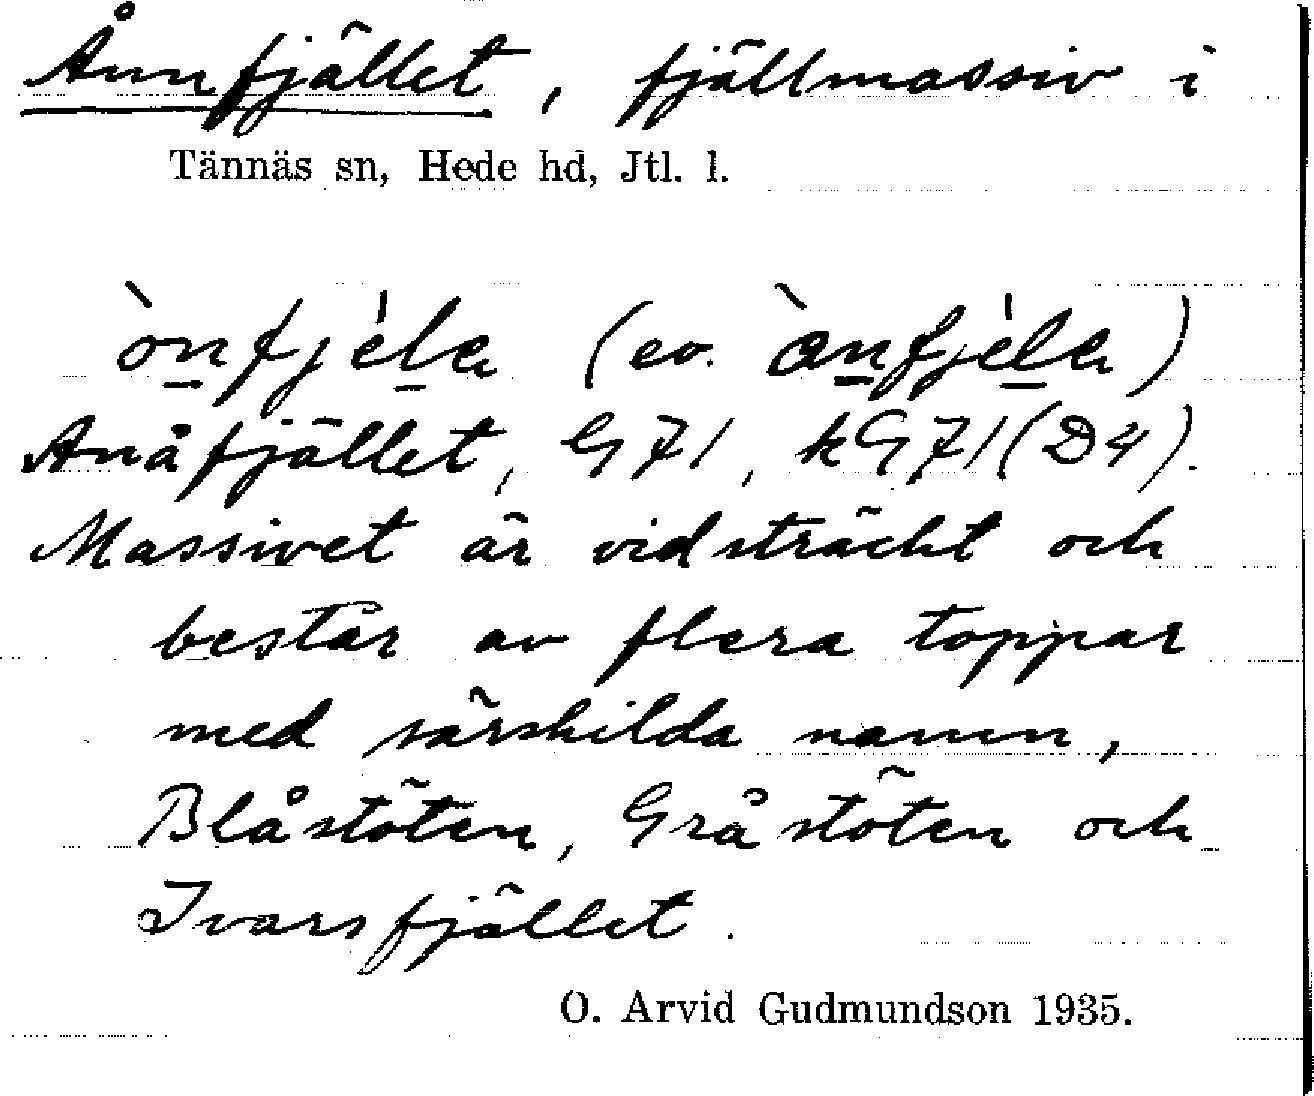 Ånnfjället, fjällmassiv i
Tännäs sn, Hede hd, Jtl. l.
òn̲fjèl̲a (ev. àn̲fjèl̲a)
Anåfjället, G71, kG71(D4).
Massivet är vidsträckt och
består av flera toppar
med särskilda namn,
Blåstöten, Gråstöten och
Ivarsfjället.
O. Arvid Gudmundson 1935.